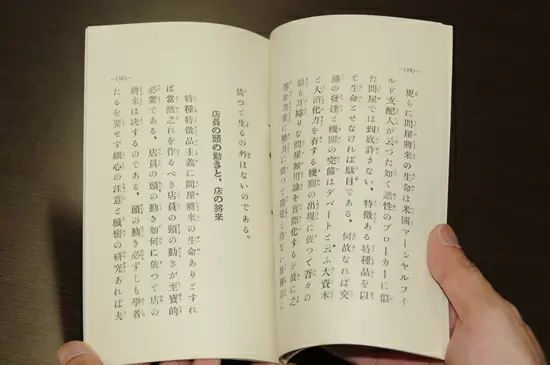 更らに問屋將來の生命は米國マーシヤルフイ
ルド支配人が云つた如く惡性のブローカーに似
た問屋では到底許さない、特徴ある特種品を以
て生命とせなければ駄目である、何故なれば交
通の發達と機關の完備はデパートと云ふ大資本
と大消化力を有する機關の出現に依つて吾々の
最も刀障りな問屋無用論を實際化するが故に之
に努力
依つて生るの外はないのである。
店員の頭の動きと、店の將來
特種特徴品主義に問屋將來の生命ありとすれ
ば當然之れを作るべき店員の頭の動きが至寶的
必要である、店員の頭の動き如何に依つて店の
將來は決するのである、頭の動き必ずしも學者
たるを要せず細心の注意と緻密の研究あれば夫